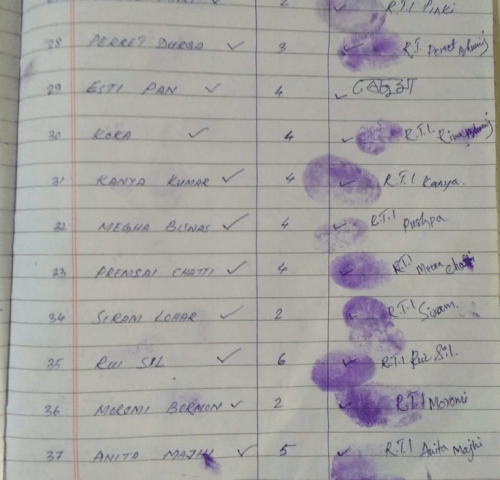 2 R.T.I Pinki
28 PERRET DURGO ✓ 3 ✓ R.T.
29 ESTI PAN ✓ 4 ✓
30 KORA ✓ 4 ✓ R.T.I.
31 KANYA KUMAR ✓ 4 ✓ R.T.I Kanya.
32 MEGHA BISWAS ✓ 4 ✓ R.T.I Pushpa
33 PREMSAI CHATTI ✓ 4 ✓ R.T.I Meera Chatti
34 SIRAM LOHAR ✓ 2 ✓ R.T.I Siram.
35 RUI SIL ✓ 6 ✓ R.T.I Rui Sil.
36 MOROMI BORMON ✓ 2 ✓ R.T.I Moromi
37 ANITA MAJHI ✓ 5 ✓ R.T.I Anita Majhi